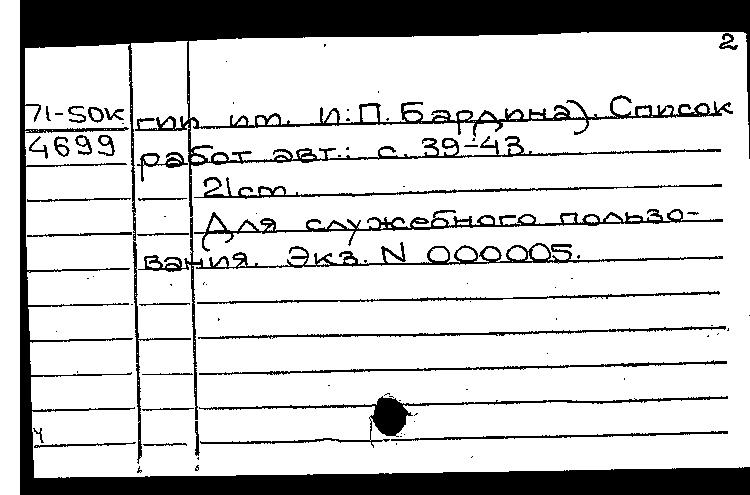 2
71-50к гии им. И.П. Бардина). Список
4699 работ авт.: с. 39-43.
21cm.
Для служебного пользо-
вания. Экз. N 000005.